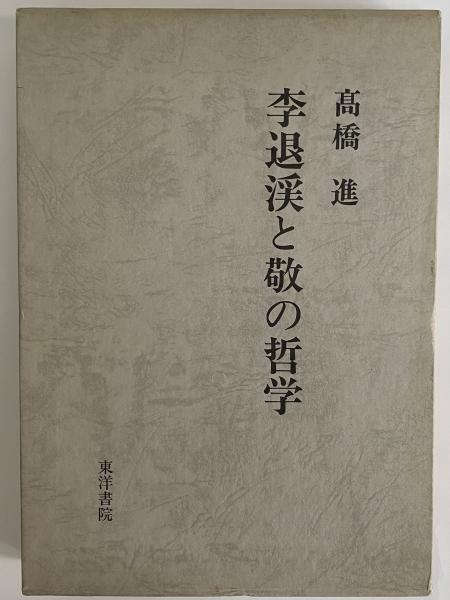 髙橋 進
李退渓と敬の哲学
東洋書院